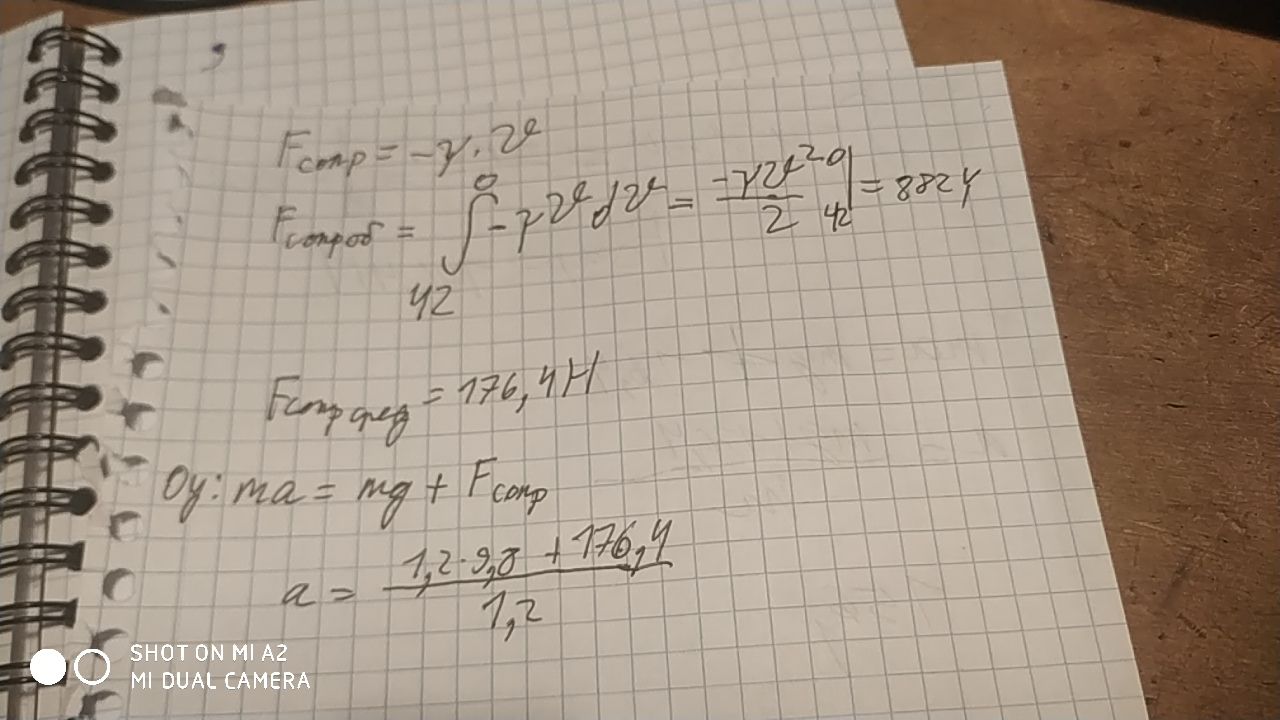 Fсопр = -γ·v
Fсопр об = ∫₄₂⁰ -γv dv = -γv²/2 |₄₂⁰ = 882γ
Fсопр сред = 176,4 Н
Oy: ma = mg + Fсопр
a = (1,2·9,8 + 176,4)/1,2
SHOT ON MI A2
MI DUAL CAMERA